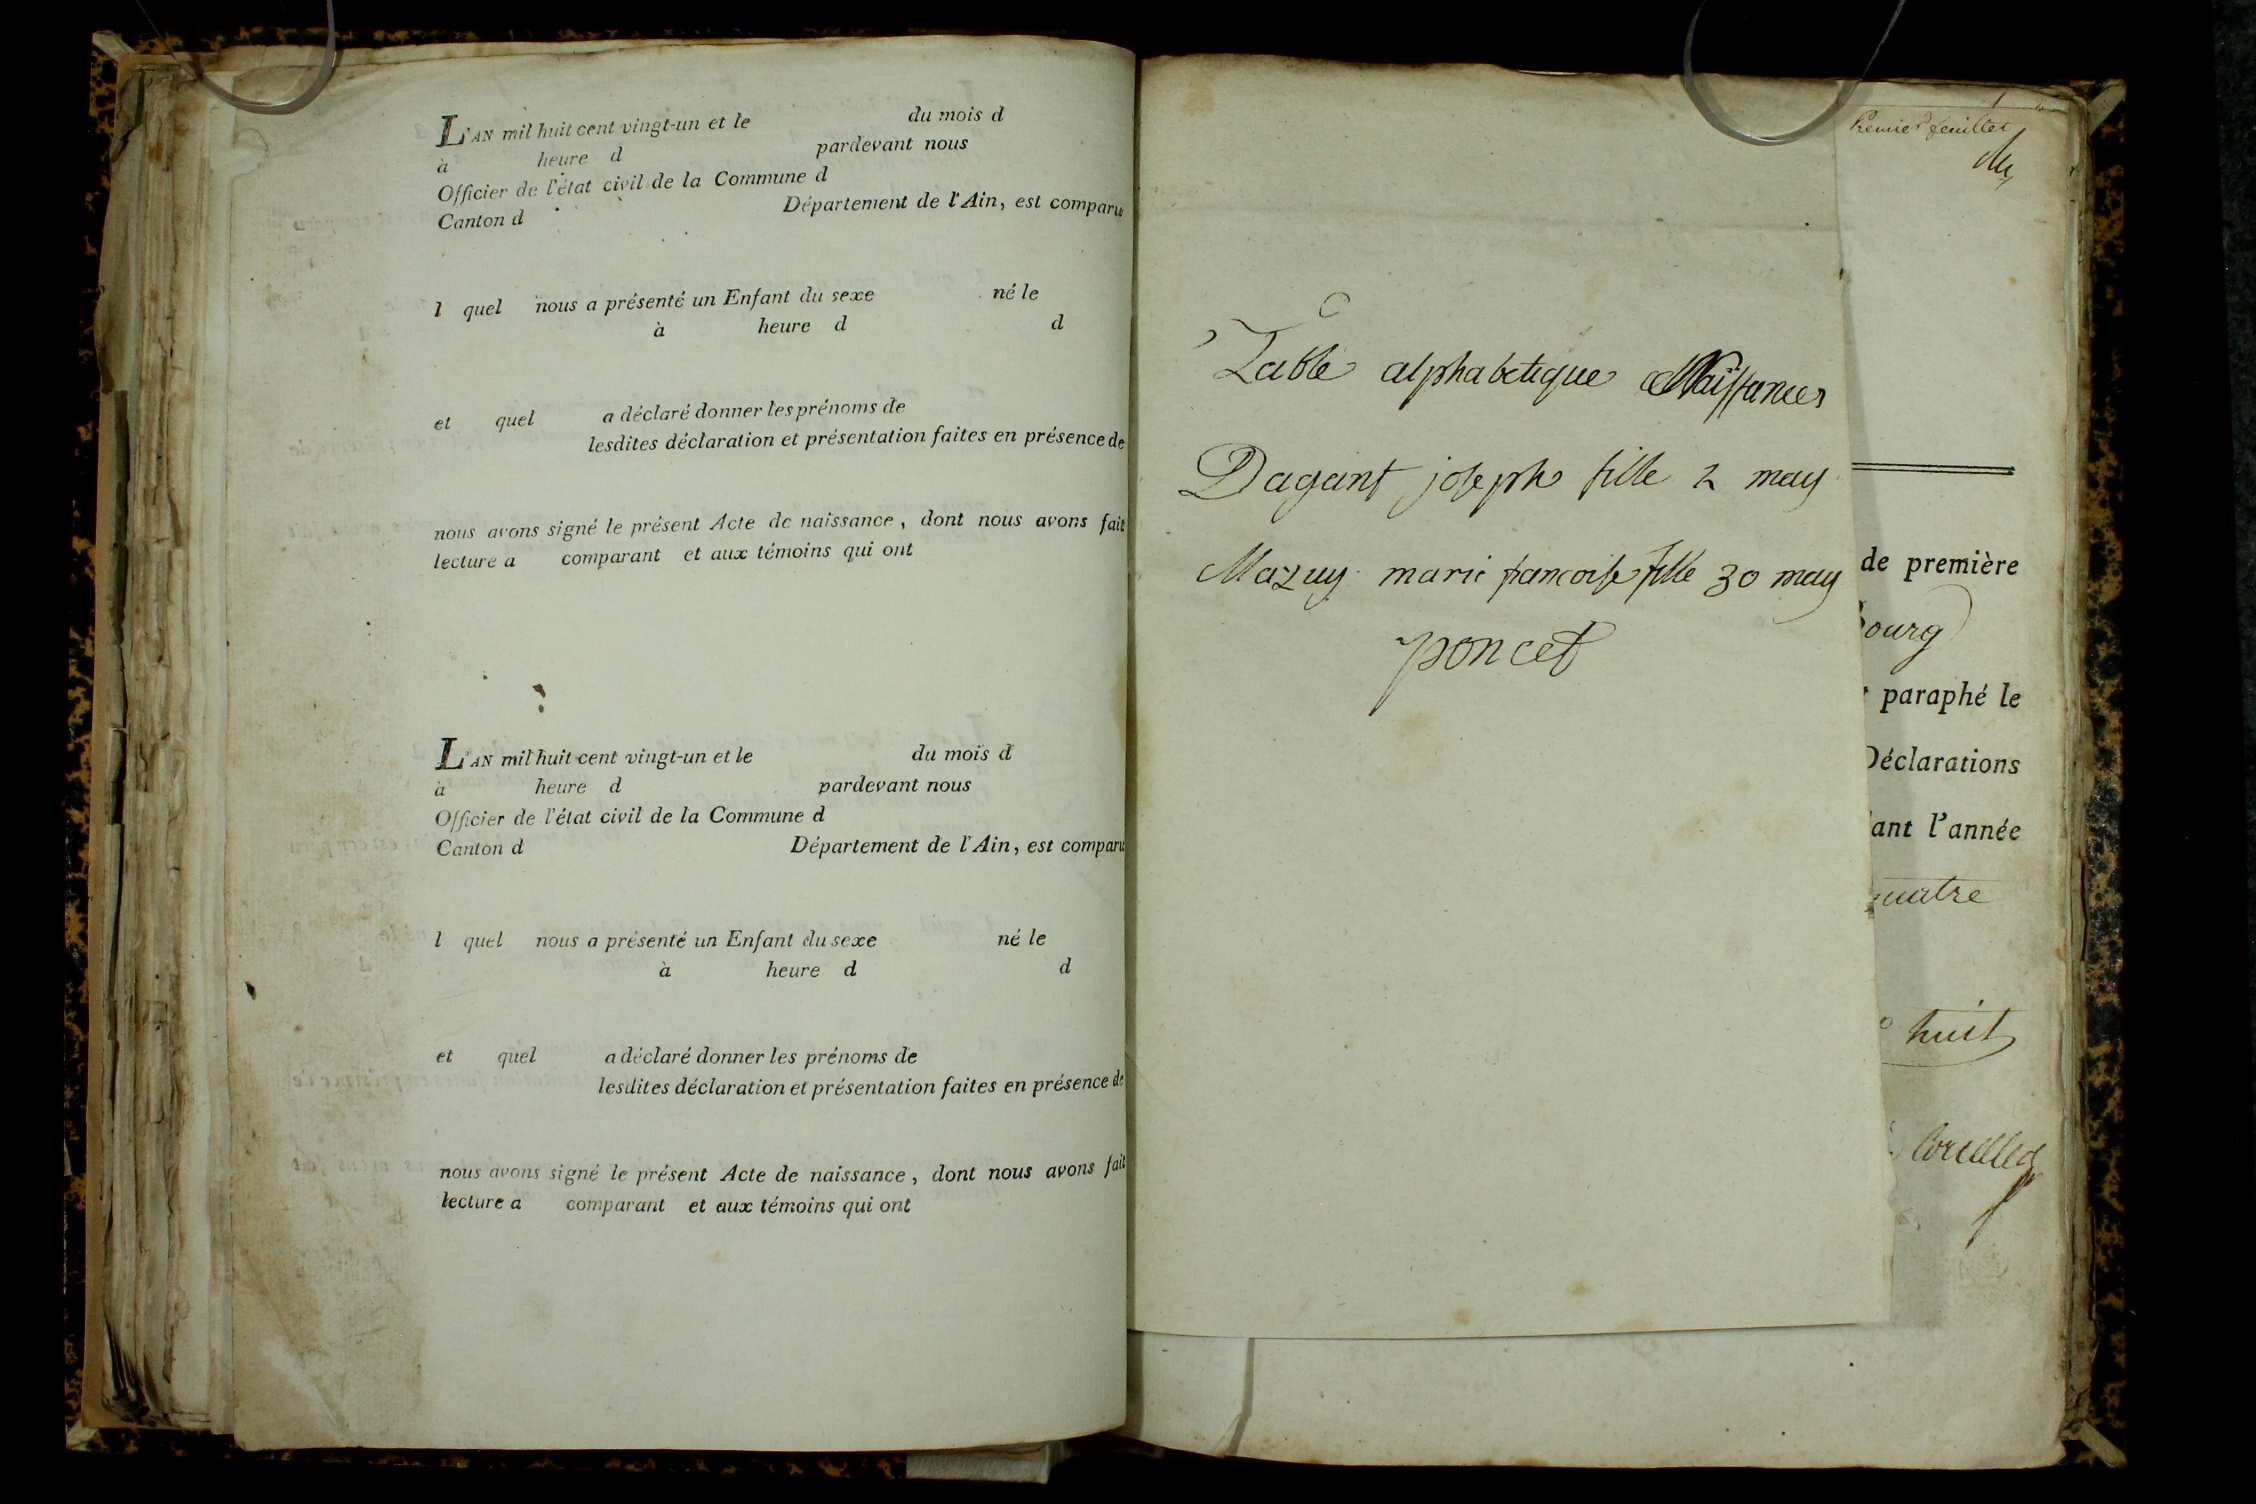 L'AN mil huit cent vingt-un et le du mois d
à heure d pardevant nous
Officier de l'état civil de la Commune d
Canton d Département de l'Ain, est comparu
l quel nous a présenté un Enfant du sexe né le
à heure d d
et quel a déclaré donner les prénoms de
lesdites déclaration et présentation faites en présence de
nous avons signé le présent Acte de naissance, dont nous avons fait
lecture a comparant et aux témoins qui ont
L'AN mil huit cent vingt-un et le du mois d
à heure d pardevant nous
Officier de l'état civil de la Commune d
Canton d Département de l'Ain, est comparu
l quel nous a présenté un Enfant du sexe né le
à heure d d
et quel a déclaré donner les prénoms de
lesdites déclaration et présentation faites en présence de
nous avons signé le présent Acte de naissance, dont nous avons fait
lecture a comparant et aux témoins qui ont
Table alphabetique Naissances
Dagant joseph fille 2 may
Mazuy marie francoise fille 30 may
poncet
Premier feuillet
de première
ourg
paraphé le
Déclarations
ant l'année
quatre
huit